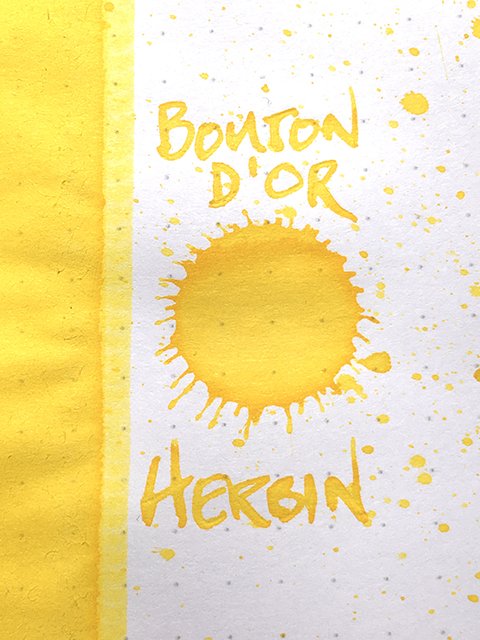 BOUTON
D'OR
HERBIN